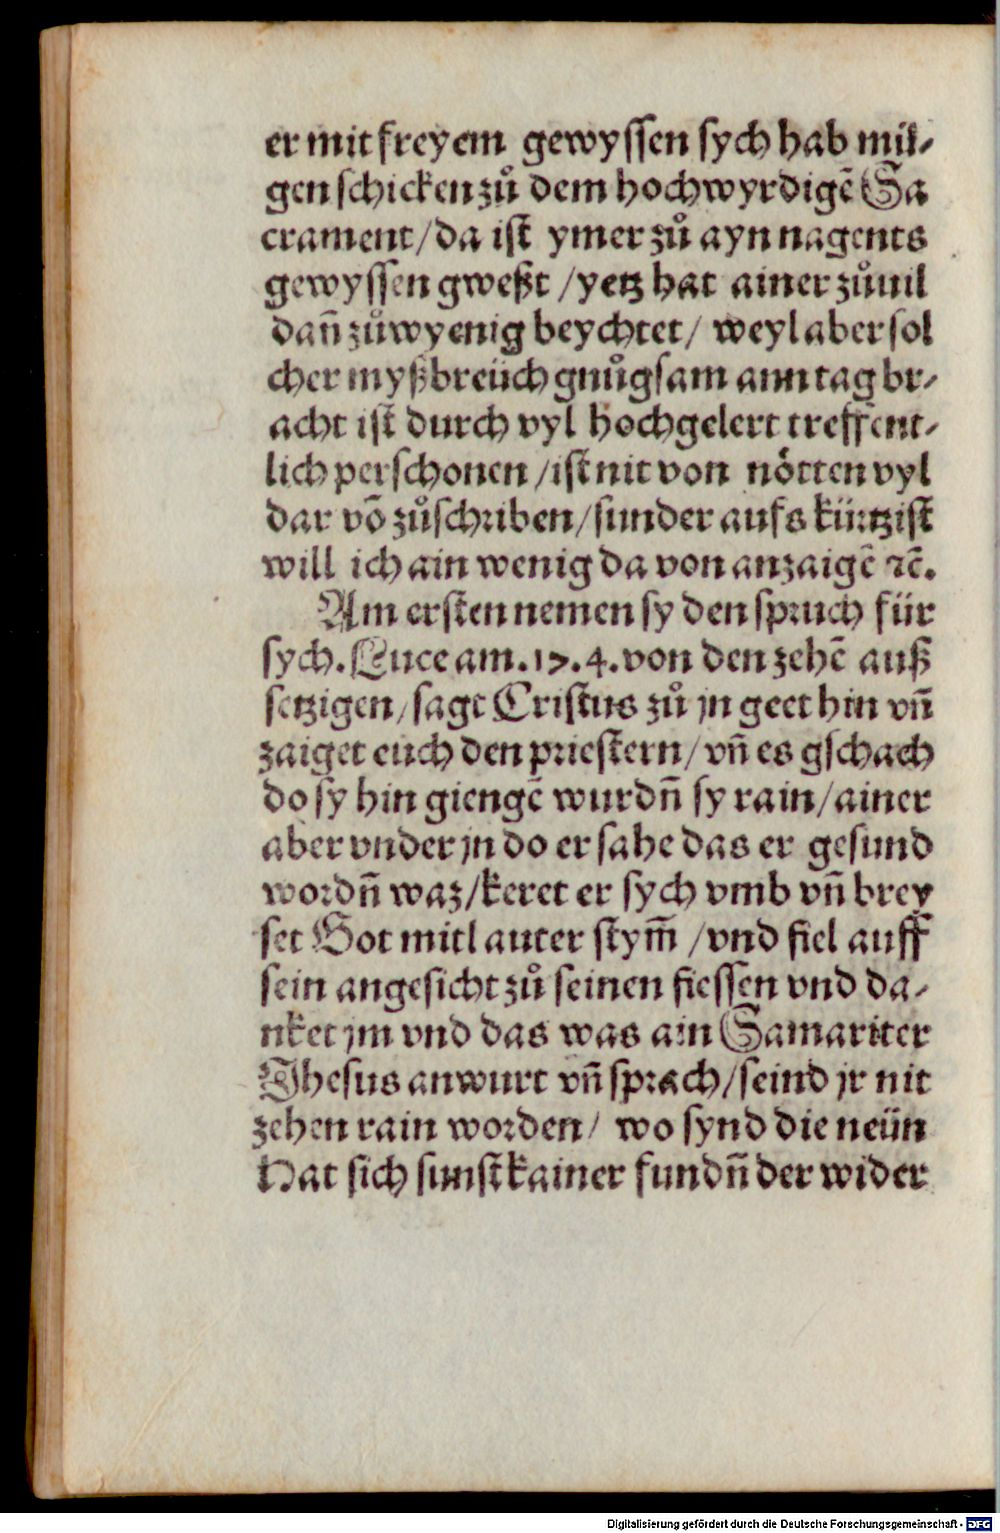 er mit freyem gewyssen sych hab mü⸗
gen schicken zů dem hochwyrdigē Sa
crament/da ist ymer zů ayn nagents
gewyssen gweßt /yetz hat ainer zůuil
dañ zůwyenig beychtet/ weyl aber sol
cher myßbreüch gnůgsam ann tag br⸗
acht ist durch vyl hochgelert treffent⸗
lich perschonen /ist nit von nötten vyl
dar vō zůschriben/sunder aufs kürtzist
will ich ain wenig da von anzaigē ⁊c̄.
Am ersten nemen sy den spruch für
sych. Luce am.17.4.von den zehē auß
setzigen/sagt Cristus zů jn geet hin vñ
zaiget euch den priestern/vñ es gschach
do sy hin giengē wurdñ sy rain/ainer
aber vnder jn do er sahe das er gesund
wordñ waz/keret er sych vmb vñ brey
set Got mitl auter stym̄ /vnd fiel auff
sein angesicht zů seinen fiessen vnd da⸗
nket jm vnd das was ain Samariter
Jhesus anwurt vñ sprach/seind jr nit
zehen rain worden/ wo synd die neün
Hat sich sunst kainer fundñ der wider
Digitalisierung gefördert durch die Deutsche Forschungsgemeinschaft - DFG